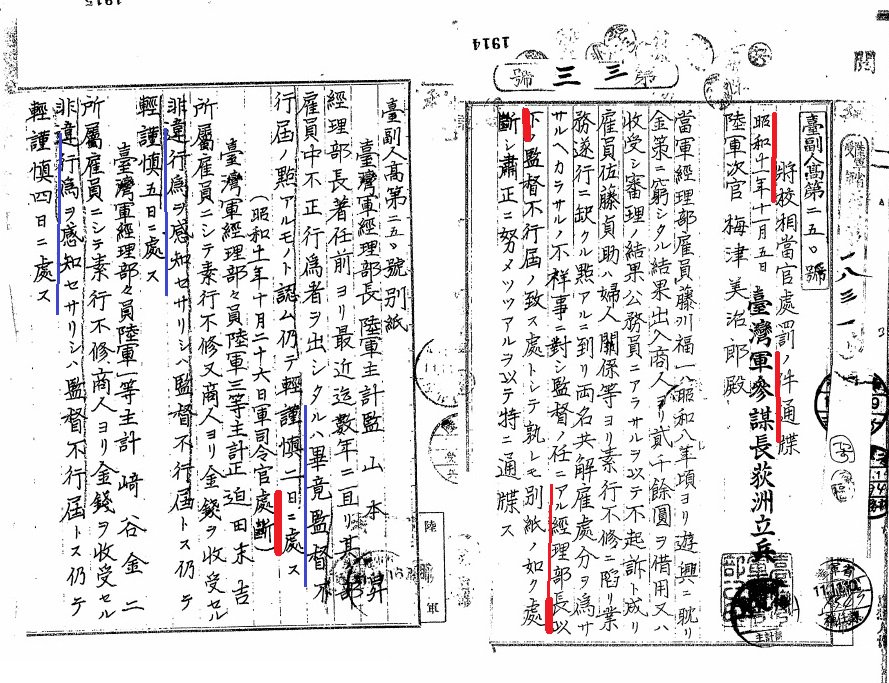 1914
第三三號
臺副人高第二五〇號
將校相當官處罰ノ件通牒
昭和十一年十一月五日
臺灣軍參謀長荻洲立兵
陸軍次官 梅津美治郎殿
當軍經理部雇員藤川福一ハ昭和八年頃ヨリ遊興ニ耽リ
金策ニ窮シタル結果出入商人ヨリ貳千餘圓ヲ借用又ハ
收受シ審理ノ結果公務員ニアラサルヲ以テ不起訴ト成リ
雇員佐藤貞助ハ婦人關係等ヨリ素行不修ニ陷リ業
務遂行ニ缺クル點アルニ到リ両名共解雇處分ヲ爲サ
サルヘカラサルノ不祥事ニ對シ監督ノ任ニアル經理部長以
下ノ監督不行届ノ致ス處トシテ孰レモ別紙ノ如ク處
斷シ肅正ニ努メツツアルヲ以テ特ニ通牒ス
一八三一
1915
臺副人高第二五〇號別紙
臺灣軍經理部長陸軍主計監 山本昇
經理部長著任前ヨリ最近迄數年ニ亘リ其ノ部
雇員中不正行爲者ヲ出シタルハ畢竟監督不
行届ノ點アルモノト認ム仍テ輕謹慎二日ニ處ス
(昭和十一年十月二十六日軍司令官處斷)
臺灣軍經理部々員陸軍三等主計正 迫田末吉
所屬雇員ニシテ素行不修又商人ヨリ金錢ヲ收受セル
非違行爲ヲ感知セサリシハ監督不行届トス仍テ
輕謹慎五日ニ處ス
臺灣軍經理部々員陸軍一等主計 﨑谷金二
所屬雇員ニシテ素行不修商人ヨリ金錢ヲ收受セル
非違行爲ヲ感知セサリシハ監督不行届トス仍テ
輕謹慎四日ニ處ス
陸軍